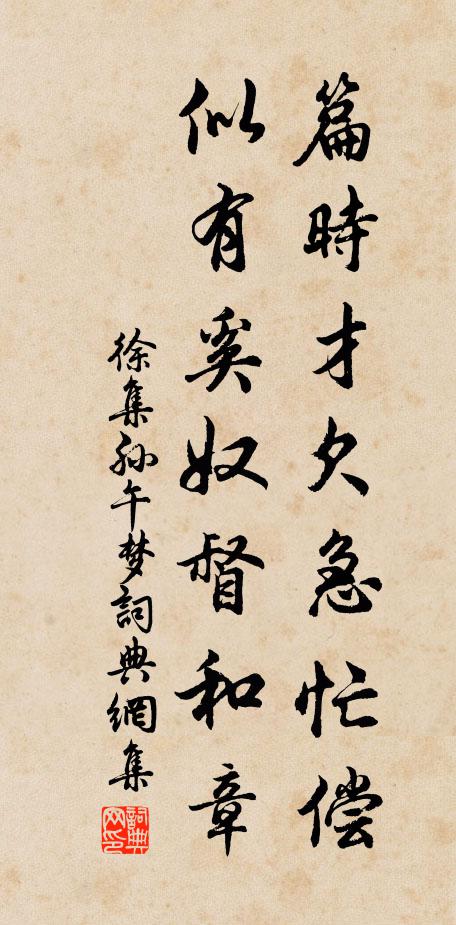 篇時才欠急忙偿
似有奚奴督和章
徐集孙午梦詞典網集
詞典
网印